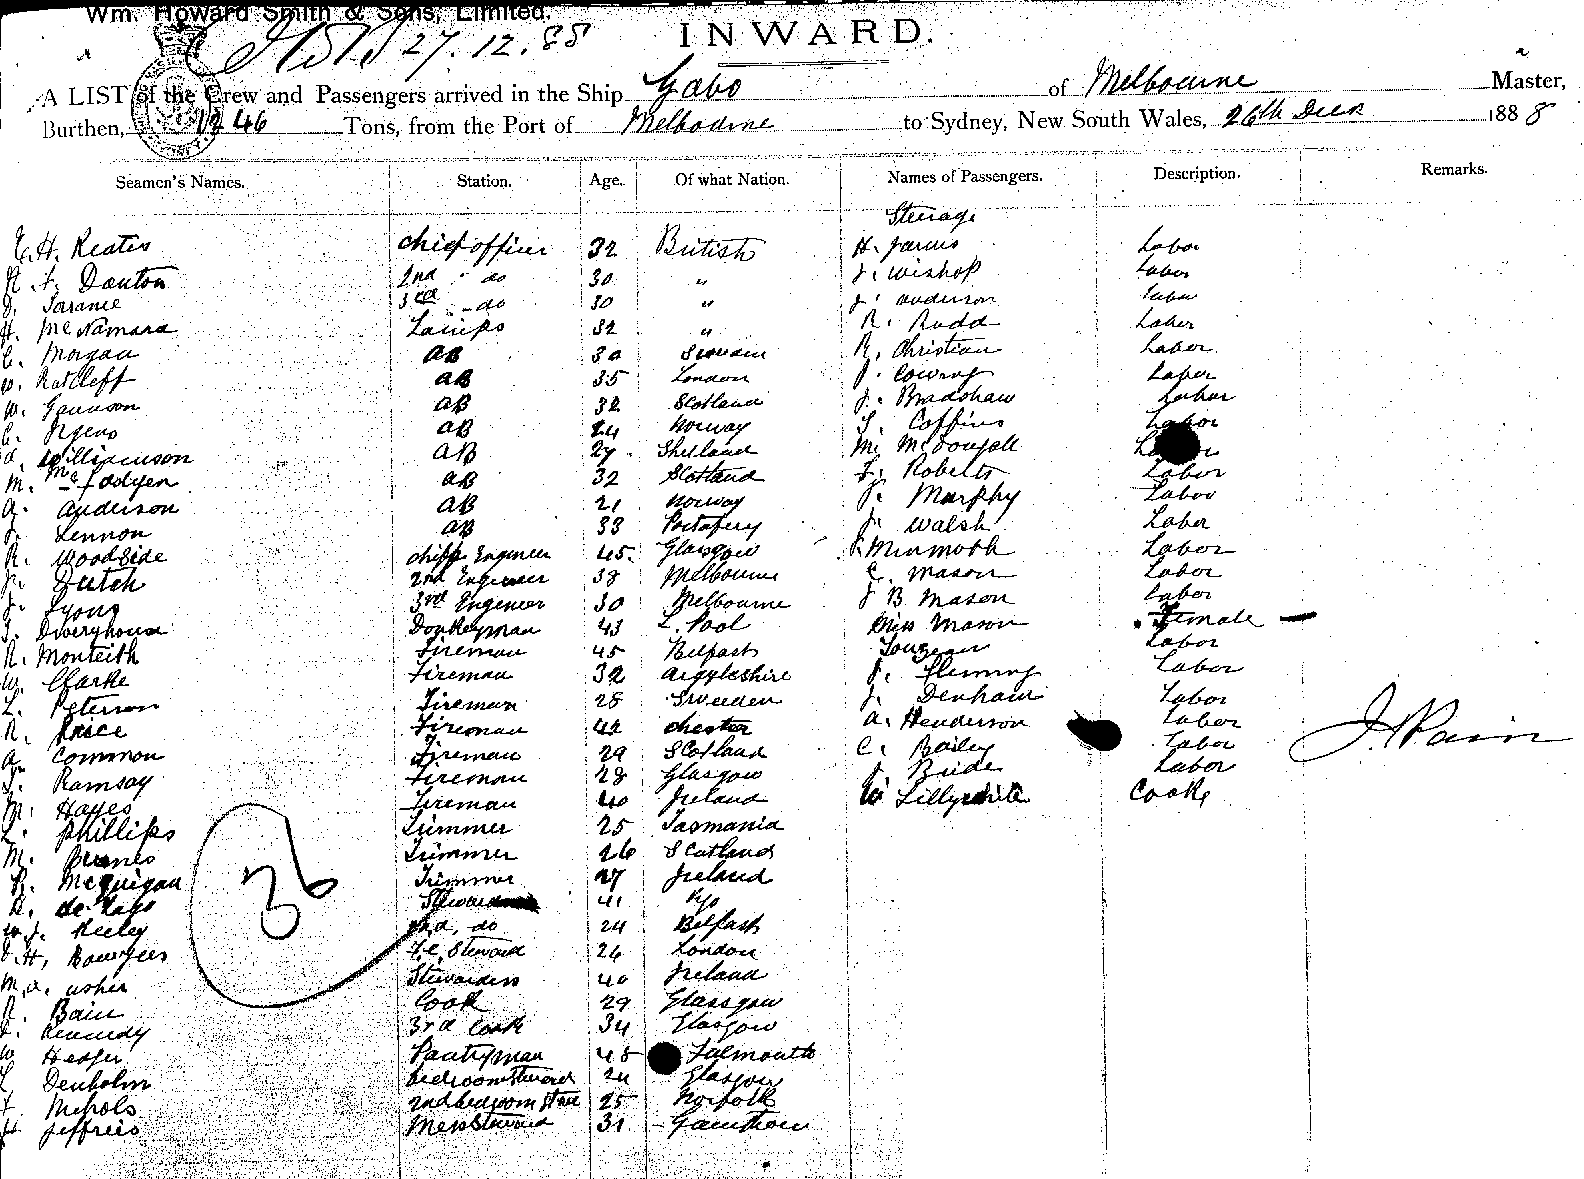 Wm. Howard Smith & Sons, Limited.
27.12.88
INWARD.
A LIST of the Crew and Passengers arrived in the Ship Gabo of Melbourne Master,
Burthen, 1246 Tons, from the Port of Melbourne to Sydney, New South Wales, 26th Decr 1888
Seamen's Names. Station. Age. Of what Nation. Names of Passengers. Description. Remarks.
Steerage
E.H. Keates chief officer 32 British H. Jarvis Labor
Danton 2nd " do 30 " J. Wishop Labor
3rd " do 30 " J. Anderson Labor
H. McNamara Lamps 32 " R. Rudd Labor
C. Morgan AB 30 Sweden R. Christian Labor
W. Ratcleff AB 35 London J. Labor
W. Gunnson AB 32 Scotland J. Bradshaw Labor
C. AB 24 Norway S. Coffins Labor
Williamson AB 27 Shetland M. McDougall Labor
M. McFadyen AB 32 Scotland J. Roberts Labor
A. Anderson AB 21 Norway J. Murphy Labor
J. Lennon AB 33 J. Walsh Labor
R. Woodside chief Engineer 45 Glasgow Labor
J. 2nd Engineer 38 Melbourne C. Mason Labor
J. Lyons 3rd Engineer 30 Melbourne J B Mason Labor
Donkeyman 43 L. Pool Miss Mason Female
R. Monteith Fireman 45 Belfast Labor
W. Clarke Fireman 32 Argyleshire J. Fleming Labor
L. Peterson Fireman 28 Sweeden J. Denham Labor
R. Price Fireman 42 chester A. Henderson Labor
A. Common Fireman 29 Scotland C. Bailey Labor
J. Ramsay Fireman 28 Glasgow J. Bride Labor
M. Hayes Fireman 40 Ireland W Lillywhite Cook
L. Phillips Trimmer 25 Tasmania
M. Trimmer 26 Scotland
McGuigan Trimmer 27 Ireland
36
Steward 41
W.J. Keeley 2nd, do 24 Belfast
H. Bourgers Steward 26 London
M.A. Usher Stewardess 40 Ireland
R. Bain Cook 29 Glassgow
Kennedy 3rd Cook 34 Glasgow
W Pantryman 48 Falmouth
Denholm bedroom Steward 24 Glasgow
Nichols 2nd bedroom Stew 25 Norfolk
H Jeffreis Mess Steward 31